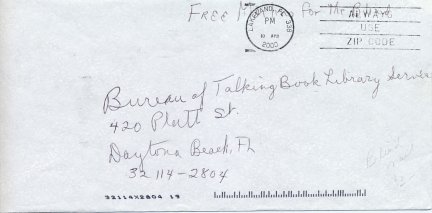 FREE For The Blind
LAKELAND, FL 338
PM
10 APR
2000
ALWAYS
USE
ZIP CODE
Bureau of Talking Book Library Service
420 Platt St.
Daytona Beach, Fl
32114-2804
32114X2804 19